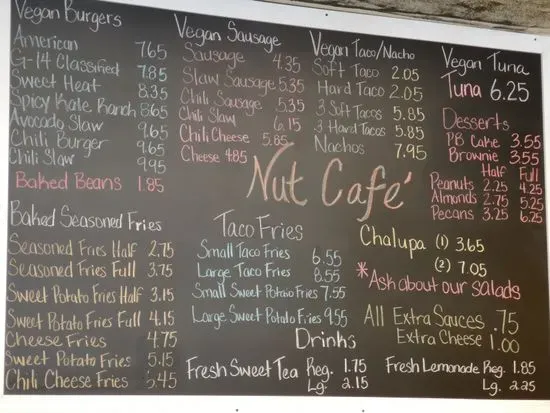 Vegan Burgers
American 7.65
G-14 Classified 7.85
Sweet Heat 8.35
Spicy Kate Ranch 8.65
Avocado Slaw 9.65
Chili Burger 9.65
Chili Slaw 9.95
Baked Beans 1.85
Vegan Sausage
Sausage 4.35
Slaw Sausage 5.35
Chili Sausage 5.35
Chili Slaw 6.15
Chili Cheese 5.85
Cheese 4.85
Vegan Taco/Nacho
Soft Taco 2.05
Hard Taco 2.05
3 Soft Tacos 5.85
3 Hard Tacos 5.85
Nachos 7.95
Vegan Tuna
Tuna 6.25
Desserts
PB Cake 3.55
Brownie 3.55
Half Full
Peanuts 2.25 4.25
Almonds 2.75 5.25
Pecans 3.25 6.25
Nut Café
Baked Seasoned Fries
Seasoned Fries Half 2.75
Seasoned Fries Full 3.75
Sweet Potato Fries Half 3.15
Sweet Potato Fries Full 4.15
Cheese Fries 4.75
Sweet Potato Fries 5.15
Chili Cheese Fries 5.45
Taco Fries
Small Taco Fries 6.55
Large Taco Fries 8.55
Small Sweet Potato Fries 7.55
Large Sweet Potato Fries 9.55
Chalupa (1) 3.65
(2) 7.05
*Ask about our salads
All Extra Sauces .75
Extra Cheese 1.00
Drinks
Fresh Sweet Tea Reg. 1.75
Lg. 2.15
Fresh Lemonade Reg. 1.85
Lg. 2.25